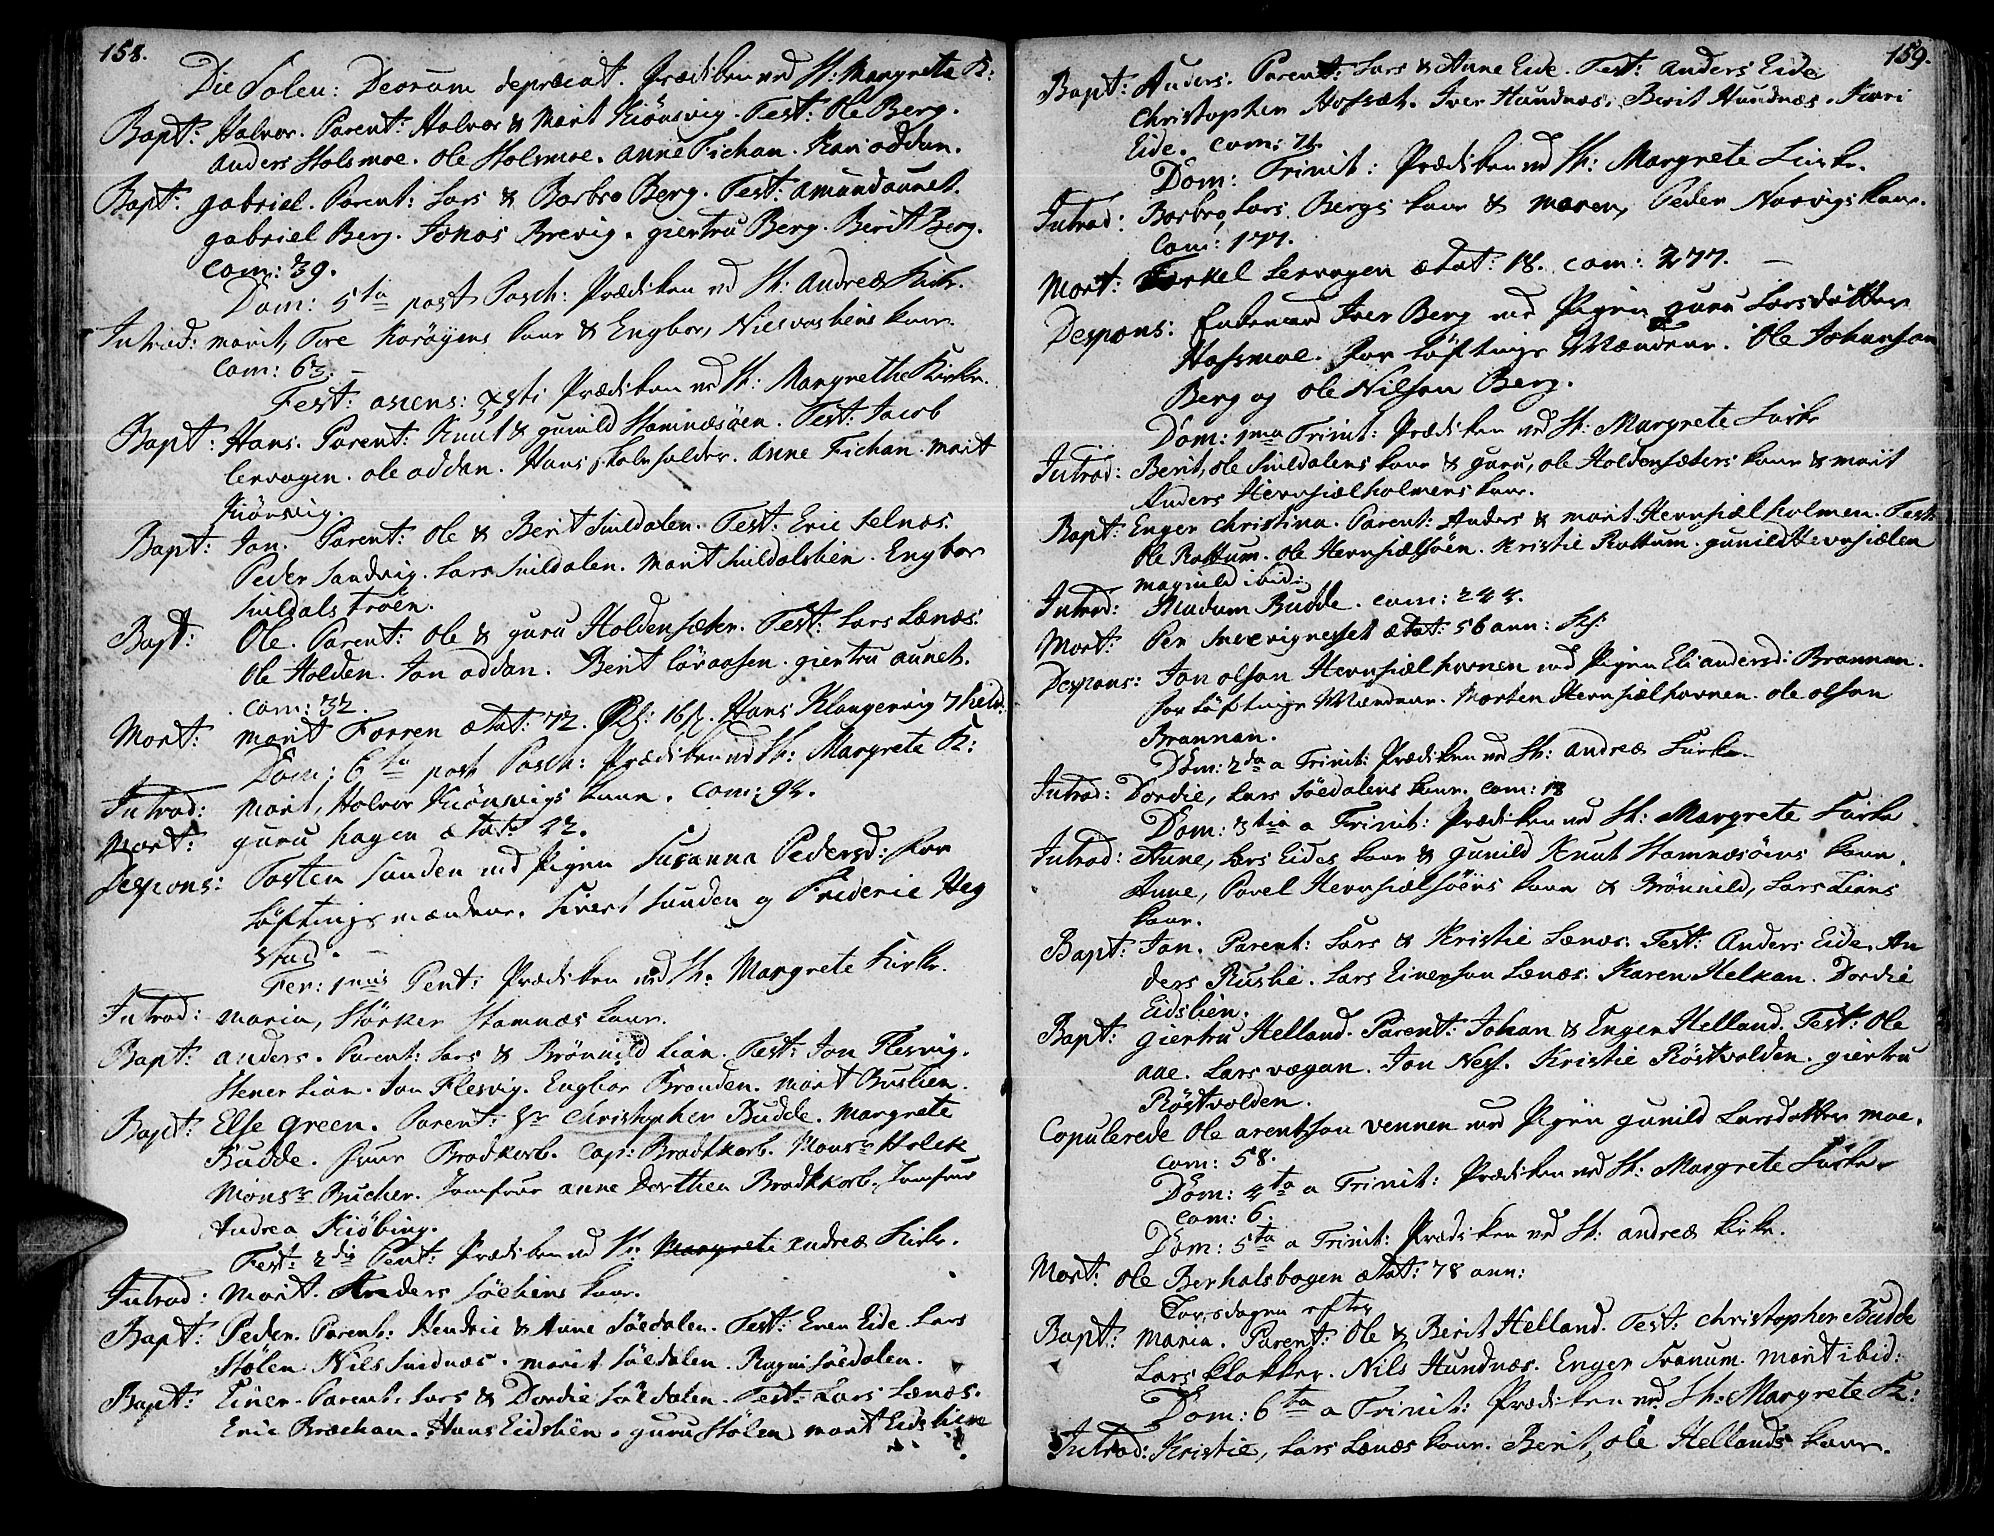 158.
Die Solen: Deorum depræcat. Prædiken ved St: Margrete K:
Bapt: Halvor. Parent: Halvor & Marit Kiönsvig. Test: Ole Berg.
Anders Holsmoe. Ole Holsmoe. Anne Fichan. Kari oddan.
Bapt: gabriel. Parent: Lars & Barbro Berg. Test: Amund aunet.
gabriel Berg. Jonas Brevig. giertru Berg. Berit Berg.
Com: 39.
Dom: 5ta post Pasch: Prædiken ved St: Andreæ Kirke.
Introd: marit, Tore Korøyens kone & Engbor, Niels kone
Com: 63.
Fest: ascens: Xsti Prædiken ved St: Margrethe Kirke.
Bapt: Hans. Parent: Knut & gunild Stamnæsöen. Test: Jacob
Lervagen. ole oddan. Hans Skoleholder. Anne Fichan. Marit
Kiönsvig.
Bapt: Jon. Parent: Ole & Berit Suuldalen. Test: Eric Selnæs.
Peder Sandvig. Lars Suuldalen. Marit Suuldalslien. Engbor
Suuldalstroën.
Bapt: Ole. Parent: ole & guru Holdensæter. Test: Lars Lenæs.
Ole Holden. Jon oddan. Berit Löraasen. giertru aunet.
Com: 32.
Mort: marit Forren ætat: 72. 16 s. Hans Klangervig
Dom: 6ta post Pasch: Prædiken ved St: Margrete K:
Introd: Marit, Halvor Kiönsvigs kone. Com: 94.
Mort: guru hagen ætat: 22.
Despons: Tosten Sunden ved Pigen Susanna Pedersd: for
Løftings mændene. Sivert Sunden og Frideric Heg
stad.
Fer: 1mis Pent: Prædiken ved St: Margrete Kirke.
Introd: maria, Störker Stamnæs kone.
Bapt: anders. Parent: Lars & Brönnild Lian. Test: Jon Flesvig.
Stener Lian. Jon Flesvig. Engbor Branden. Marit Buslien.
Bapt: Else Green. Parent: Hr Christopher Budde. Margrete
Budde. fruer Bradkorb. Cap: Bradkkorb. Monsr Holck
Monsr Bucher. Jomfrue anne Dorthea Bradkkorb. Jomfrue
Andrea Kiöbing.
Fest: 2di Pent: Prædiken ved St: Margrete Andreæ Kirke.
Introd: Marit. Anders Söeliens kone.
Bapt: Peder. Parent: Hendric & Anne Söedalen. Test: Even Eide. Lars
Stölen. Nils Sundnæs. marit Söedalen. Ragni Söedalen.
Bapt: Einer. Parent: Lars & Dordie Söedalen. Test: Lars Lenæs.
Eric Bræchan. Hans Eidslien. guru Stölen. marit Eidslien
159.
Bapt: Anders. Parent: Lars & Anne Eide. Test: Anders Eide
Christopher Hofsæt. Iver Hundnæs. Berit Hundnæs. Kari
Eide. Com: 71.
Dom: Trinit: Prædiken ved St: Margrete Kirke.
Introd: Barbro, Lars Bergs kone & maren, Peder Norvigs kone.
Com: 177.
Mort: Torkel Lervagen ætat: 18. com: 277.
Despons: Enkemand Iver Berg ved Pigen guru Larsdatter
Hassmoe. for Løftings Mændene. Ole Johansøn
Berg og ole Nilson Berg.
Dom: 1ma Trinit: Prædiken ved St: Margrete Kirke
Introd: Berit, ole Suuldalens kone & guru, ole Holdensæters kone & marit
Anders Hevnsiælholmens kone.
Bapt: Enger Christina. Parent: Anders & marit Hevnsiælholmen. Test:
Ole Rottum. Ole Hevnsiælsöen. Kristie Rottum. gunild Hevnsiælen
magnild ibid:
Introd: Madam Budde. com: 244.
Mort: Per ætat: 56 ann:
Despons: Jon olson Hevnsiælhavnen ved Pigen Eli andersd: Brannan.
for løftings Mændene. Morten Hevnsiælhavnen. ole olson
Brannan.
Dom: 2da a Trinit: Prædiken ved St: Andreæ Kirke.
Introd: Dordie, Lars Söedalens kone. com: 18
Dom: 3tia a Trinit: Prædiken ved St: Margrete Kirke.
Introd: Anne, Lars Eides kone & gunild Knut Stamnæsöens kone.
Anne, Povel Hevnsiælsöens kone & Brönnild, Lars Lians
kone.
Bapt: Jon. Parent: Lars & Kristie Lenæs. Test: Anders Eide. An
ders Rushe. Lars Einerson Lenæs. Karen Helkan. Dordie
Eidslien.
Bapt: giertru Helland. Parent: Johan & Enger Helland. Test: Ole
aae. Lars vægan. Jon Nes. Kristie Röstvolden. giertru
Röstvolden.
Copulerede Ole arentson vennen med Pigen gunild Larsdatter moe.
com: 58.
Dom: 4ta a Trinit: Prædiken ved St: Margrete Kirke.
com: 6.
Dom: 5ta a Trinit: Prædiken ved St: andreæ kirke.
Mort: ole Berhalsbogen ætat: 78 ann:
Torsdagen efter
Bapt: maria. Parent: Ole & Berit Helland. Test: Christopher Budde
Lars klokker. Nils Hundnæs. Enger Tranum. Marit ibid:
Dom: 6ta a Trinit: Prædiken ved St: Margrete K:
Introd: Kristie, Lars Lenæs kone. Berit, ole Hellands kone.